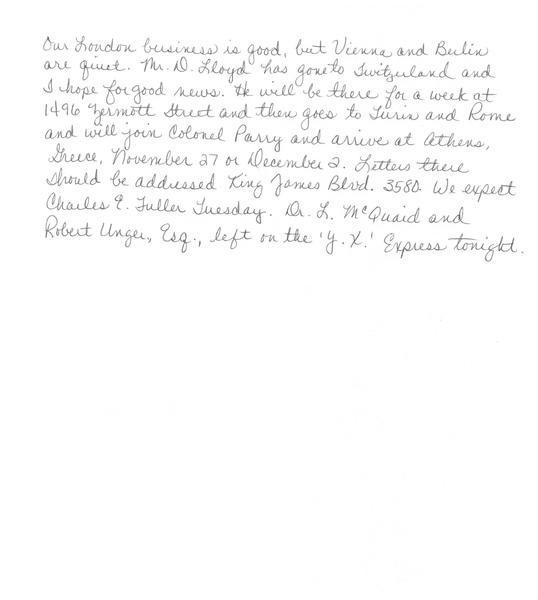 Our London business is good, but Vienna and Berlin
are quiet. Mr. D. Lloyd has gone to Switzerland and
I hope for good news. He will be there for a week at
1496 Zermott Street and then goes to Turin and Rome
and will join Colonel Parry and arrive at Athens,
Greece, November 27 or December 2. Letters there
should be addressed King James Blvd. 3580. We expect
Charles E. Fuller Tuesday. Dr. L. McQuaid and
Robert Unger, Esq., left on the 'Y. X.' Express tonight.